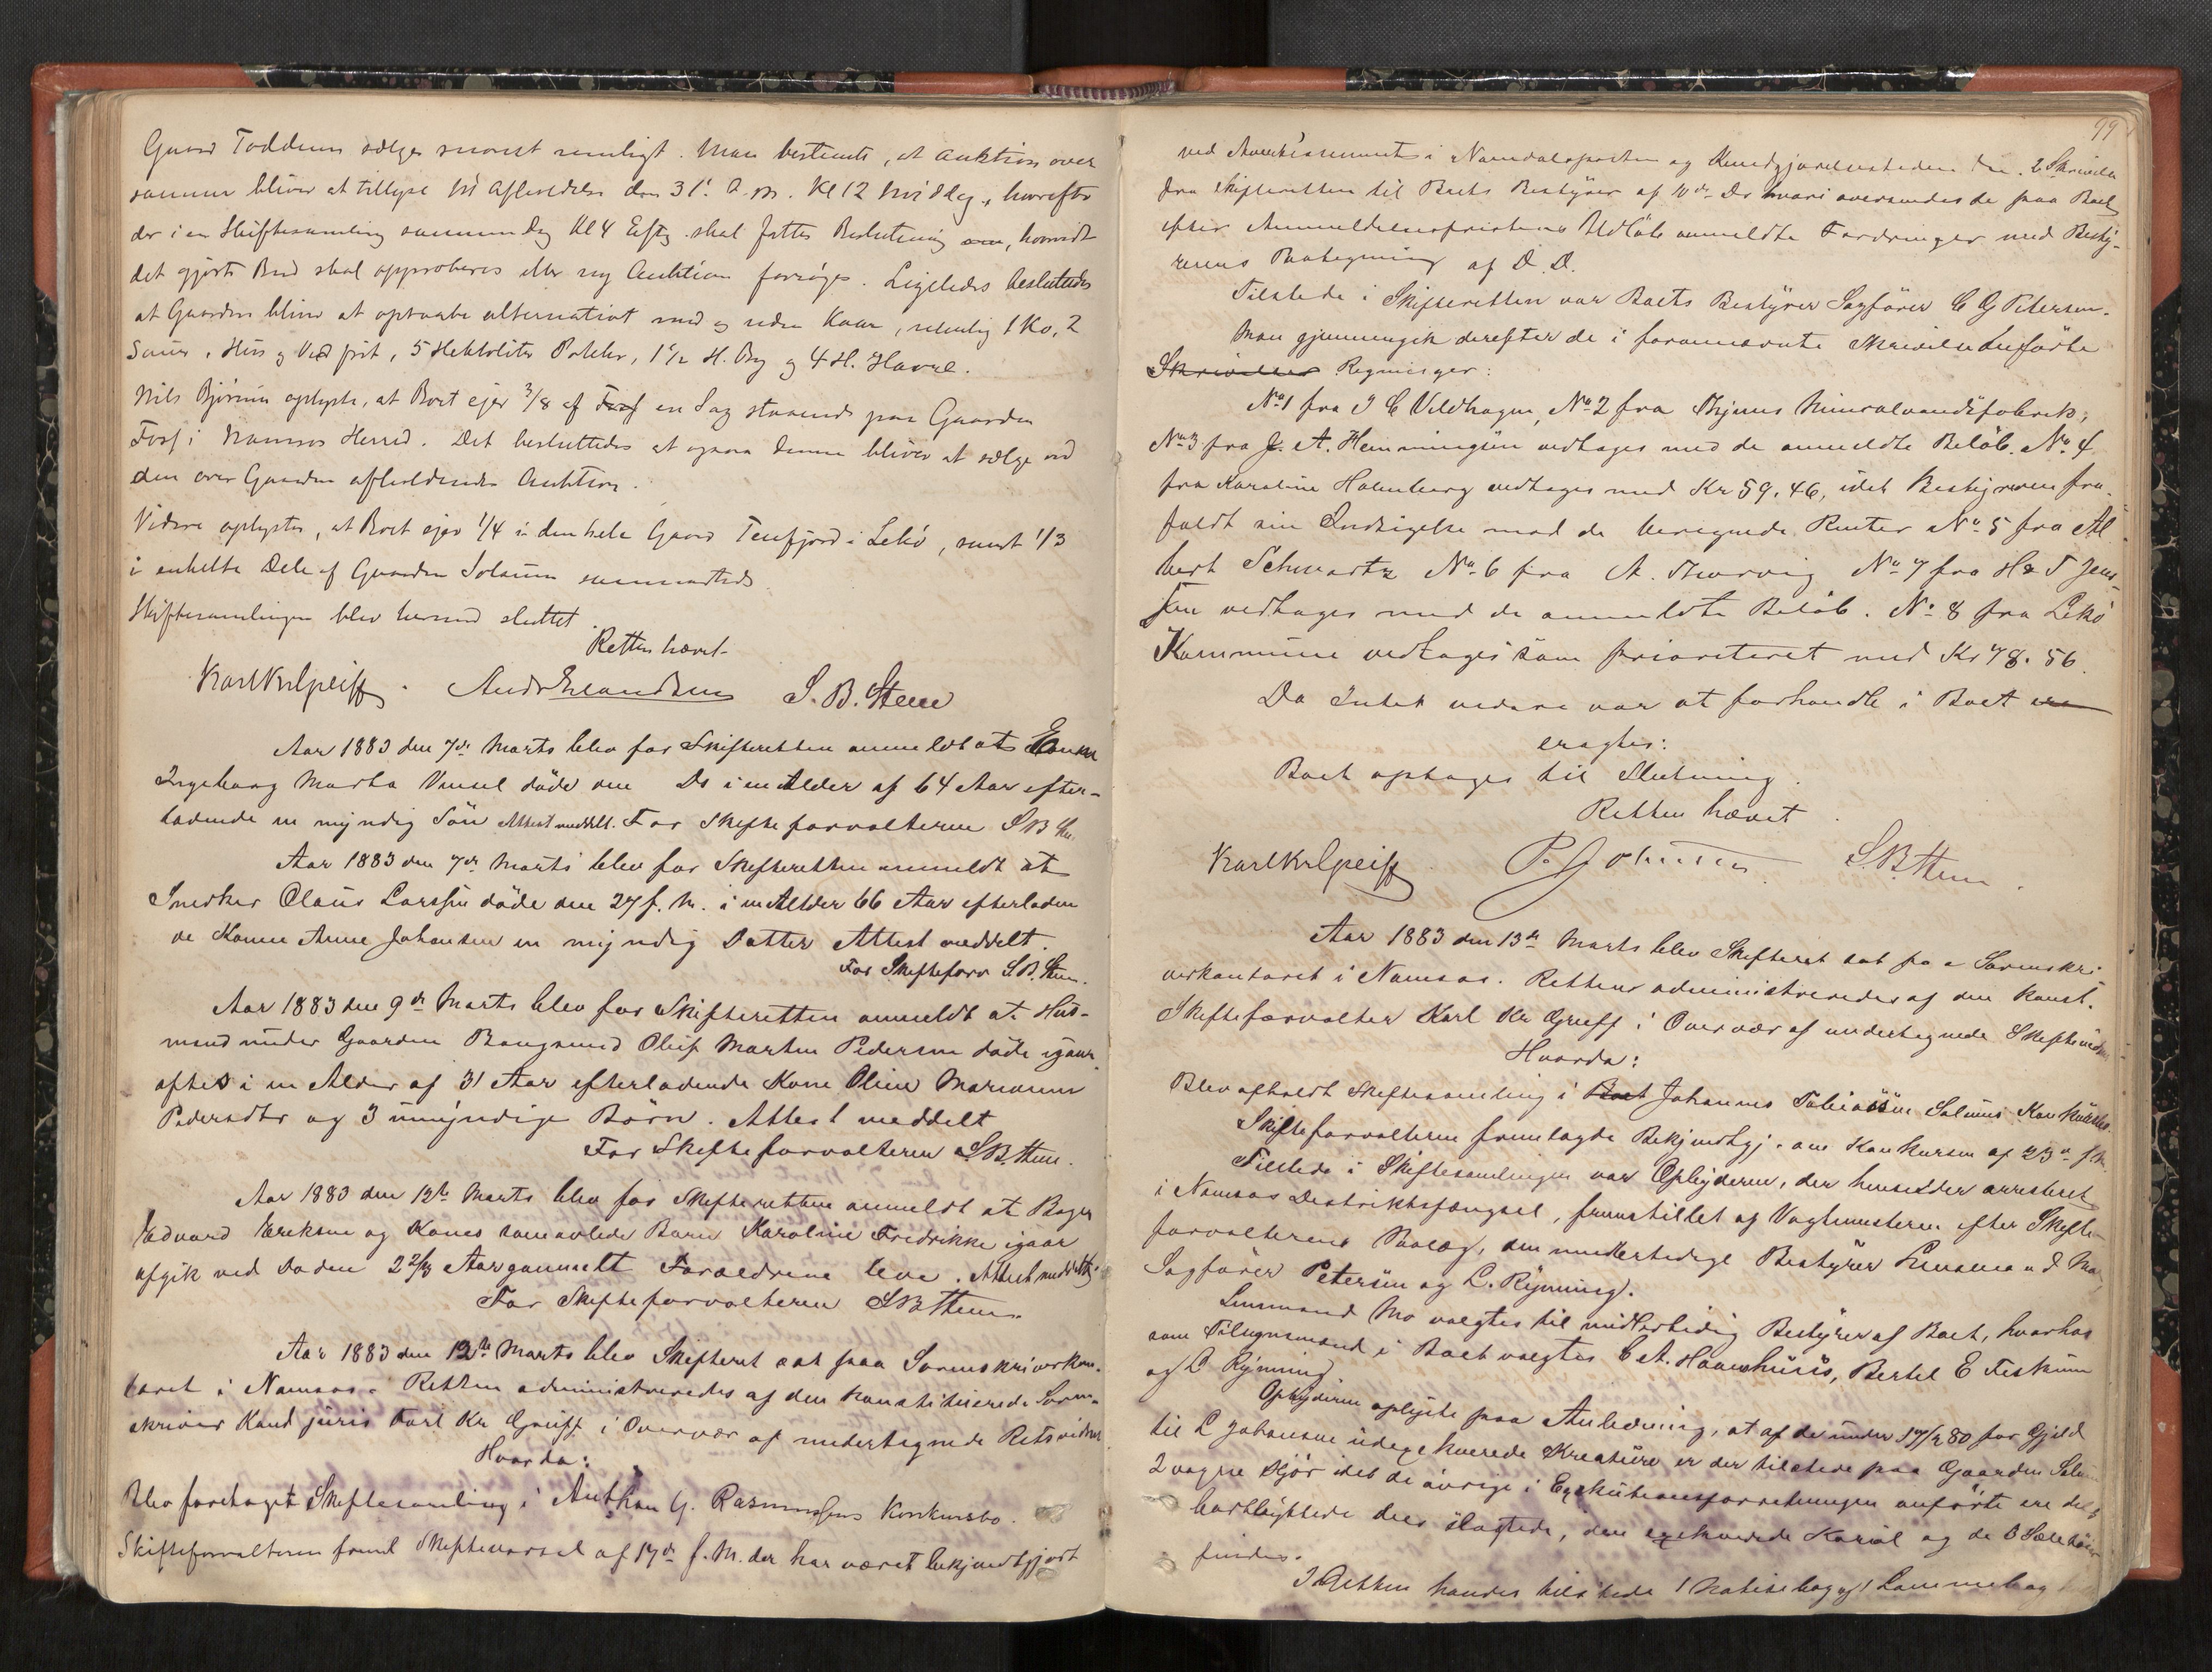 Gaard Toddum sælges snarest muligt. Man bestemte, at Auktion over
samme bliver at tillyse til Afholdelse den 31' d. M. Kl 12 Middag, hvorefter
der i en Skiftesamling samme Dag Kl 4 Eftg. skal fattes Beslutning om, hvorvidt
det gjorte Bud skal approberes eller ny Auktion forsøges. Ligeledes besluttedes
at Gaarden bliver at opraabe alternativt med og uden Kaar, nemlig 1 Ko, 2
Sauer, Hus og Ved frit, 5 Hektoliter Poteter, 1 1/2 H. Byg og 4 H. Havre.
Nils Bjørum oplyste, at Boet ejer 3/8 af en Sag staaende paa Gaarden
Foss i Namsos Herred. Det besluttedes at ogsaa denne bliver at sælge ved
den over Gaarden afholdendes Auktion.
Videre oplystes, at Boet ejer 1/4 i den hele Gaard Tenfjord i Lekø, samt 1/3
i enkelte Dele af Gaarden Solsum sammesteds
Skiftesamlingen blev hermed sluttet
Retten hævet
Karl Kr Greiff. Andr Erlandsen S. B. Stene
Aar 1883 den 7de Marts blev for Skifteretten anmeldt at Enke
Ingeborg Marta døde den Ds i en Alder af 64 Aar efter-
ladende en myndig Søn Attest meddelt. For Skifteforvalteren SB Stene
Aar 1883 den 7de Marts blev for Skifteretten anmeldt at
Snedker Claus Larssen døde den 27 f. M. i en Alder 66 Aar efterladen
de Konen Anne Johansen en myndig Datter Attest meddelt.
For Skifteforv S.B. Stene.
Aar 1883 den 9de Marts blev for Skifteretten anmeldt at Hus-
mand under Gaarden Bangsund Oluf Martin Pedersen døde igaar
aftes i en Alder af 31 Aar efterladende Kone Oline Marianne
Pedersdtr og 3 umyndige Børn. Attest meddelt
For Skifteforvalteren S.B. Stene.
Aar 1883 den 12te Marts blev for Skifteretten anmeldt at Bager
Edvard Eriksen og Kones samavlede Barn Karoline Fredrikke igaar
afgik ved Døden 2 2/3 Aar gammelt Forældrene leve. Attest meddelt
For Skifteforvalteren SB Stene.
Aar 1883 den 12te Marts blev Skifteret sat paa Sorenskriverkon-
toret i Namsos. Retten administreredes af den Konstituerede Soren-
skriver Kand juris Karl Kr Greiff i Overvær af undertegnede Retsvidner
Hvorda:
Blev foretaget Skiftesamling i Anthon G. Rasmussens Konkursbo.
Skifteforvalteren freml Skiftevarsel af 17de f. M. der har været bekjendtgjort
99
ved Avertissement i Namdalsposten og Kundgjørelsestiden 2 Skrivelser
fra Skifteretten til Boets Bestyrer af 10de Ds hvori oversendes de paa Boet
efter Anmeldelsesfristens Udløb anmeldte Fordringer med Besty-
rerens Paategning af D. D.
Tilstede i Skifteretten var Boets Bestyrer Sagfører C G Petersen.
Man gjennemgik derefter de i forannævnte Skrivelse anførte
Skrivelser Regninger:
No 1 fra J C Veldhagen, No 2 fra Thjems Mineralvandsfabrik,
No 3 fra J. A. Hemmingsen vedtages med de anmeldte Beløb. No 4
fra Karoline Holmberg vedtages med Kr 59,46, idet Bestyreren fra-
faldt sin Indsigelse mod de beregnede Renter No 5 fra Al-
bert Schwartz No 6 fra A. Thorvig No 7 fra H & T Jens-
sen vedtages med de anmeldte Beløb. No 8 fra Lekø
Kommune vedtages som prioriteret med Kr 78.56
Da Intet videre var at forhandle i Boet
eragtes:
Boet optages til Slutning.
Retten hævet
Karl Kr Greiff P. Johnsen S.B. Stene.
Aar 1883 den 13de Marts blev Skifteret sat paa Sorenskri-
verkontoret i Namsos. Retten administreredes af den konst.
Skifteforvalter Karl Kr Greiff i Overvær af undertegnede Skiftevidner
Hvorda:
Blev afholdt Skiftesamling i Boet Johannes Tobiassen Solems Konkursbo.
Skifteforvalteren fremlagde Bekjendtgj. om Konkursen af 23de f. M.
Tilstede i Skiftesamlingen var Opbyderen, der henseidder arresteret
i Namsos Distriktsfængsel, fremstillet af Vagtmesteren efter Skifte-
forvalterens Paalæg, den midlertidige Bestyrer Lensmand Mo,
Sagfører Petersen og L. Rynning.
Lensmand Mo valgtes til midlertidig Bestyrer af Boet, hvorhos
som Tilsynsmænd i Boet valgtes C A. Haanshuus, Bertel E Fiskum
og L Rynning
Opbyderen oplyste paa Anledning, at af de under 17/2 80 for Gjeld
til L Johansen udexekverede Kreature er der tilstede paa Gaarden Solem
2 vogne Kjør idet de øvrige i Exekutionsforretningen anførte ere dels
bortbyttede dels slagtede, den exekverede Kariol og de 3 Sælebøer
findes.
I Retten havdes tilstede 1 Notisebog og 1 Lommebog